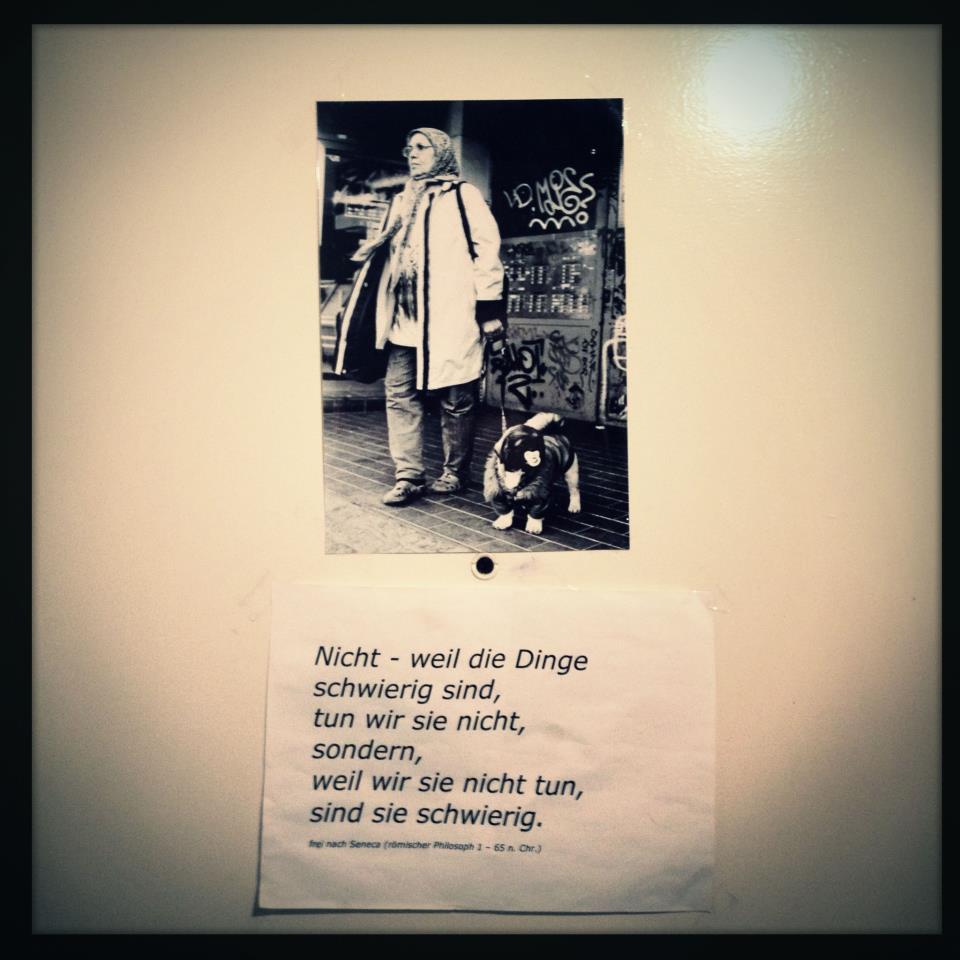 Nicht - weil die Dinge
schwierig sind,
tun wir sie nicht,
sondern,
weil wir sie nicht tun,
sind sie schwierig.
frei nach Seneca (römischer Philosoph 1 – 65 n. Chr.)